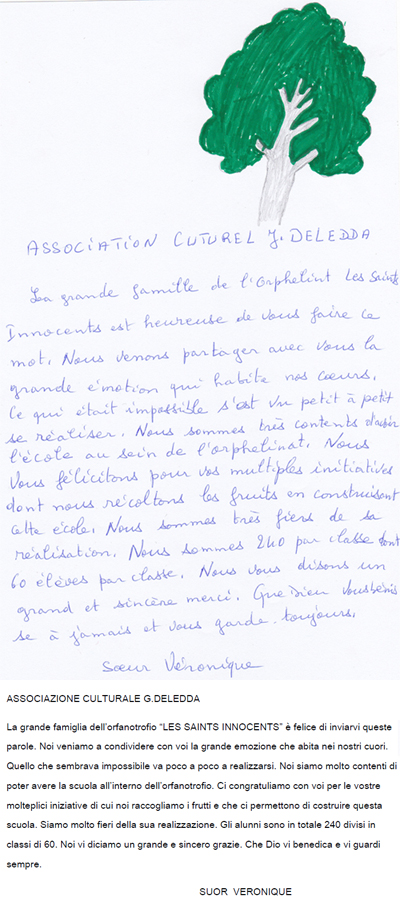 ASSOCIATION CUTUREL J. DELEDDA
La grande famille de l'Orphelint Les Saints
Innocents est heureuse de vous faire ce
mot. Nous venons partager avec vous la
grande émotion qui habite nos cœurs.
Ce qui était impossible s'est vu petit à petit
se réaliser. Nous sommes très contents d'avoir
l'école au sein de l'orphelinat. Nous
Vous félicitons pour vos multiples initiatives
dont nous récoltons les fruits en construisant
cette école. Nous sommes très fiers de sa
réalisation. Nous sommes 240 par classe dont
60 élèves par classe. Nous vous disons un
grand et sincère merci. Que Dieu vous bénis
se à jamais et vous garde toujours.
Sœur Véronique
ASSOCIAZIONE CULTURALE G.DELEDDA
La grande famiglia dell'orfanotrofio “LES SAINTS INNOCENTS” è felice di inviarvi queste
parole. Noi veniamo a condividere con voi la grande emozione che abita nei nostri cuori.
Quello che sembrava impossibile va poco a poco a realizzarsi. Noi siamo molto contenti di
poter avere la scuola all'interno dell'orfanotrofio. Ci congratuliamo con voi per le vostre
molteplici iniziative di cui noi raccogliamo i frutti e che ci permettono di costruire questa
scuola. Siamo molto fieri della sua realizzazione. Gli alunni sono in totale 240 divisi in
classi di 60. Noi vi diciamo un grande e sincero grazie. Che Dio vi benedica e vi guardi
sempre.
SUOR VERONIQUE